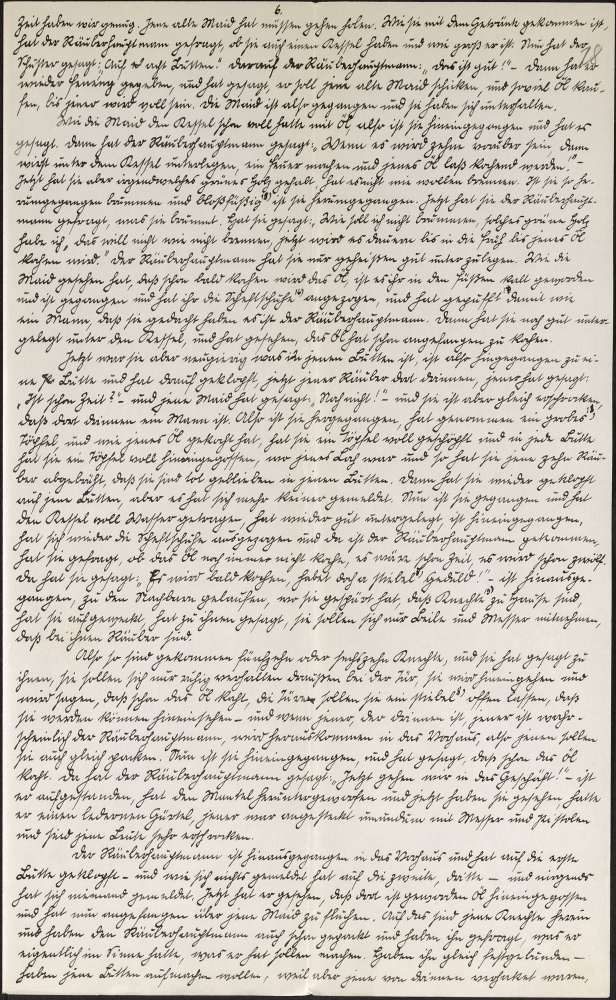 6.
18
Zeit haben wir genug. Jene alte Maid hat müssen gehen holen. Wie sie mit dem Getränk gekommen ist,
hat der Räuberhauptmann gefragt, ob sie auch einen Kessel haben und wie groß er ist. Nun hat der
Schuster gesagt: „Auch acht Bütten!" Darauf der Räuberhauptmann: „das ist gut!" - Dann hat er
wieder gegeben, und hat gesagt, er soll jene alte Maid schicken, und soviel Öl kau-
fen, bis jener wird voll sein. Die Maid ist also gegangen und sie haben sich unterhalten.
Wie die Maid den Kessel schon voll hatte mit Öl, also ist sie hineingegangen und hat es
gesagt. Dann hat der Räuberhauptmann gesagt: „Wenn es wird zehn vorüber sein, dann
wirst unter dem Kessel unterlegen, ein Feuer machen und jenes Öl laß kochend werden!" -
Jetzt hat sie aber irgendwelches grünes Holz gehabt, hat es nicht wie wollen brennen. Ist sie so he-
rumgegangen brummen und bloßfüßig ist sie herumgegangen. Jetzt hat sie der Räuberhaupt-
mann gefragt, was sie brummt. Hat sie gesagt: „Wie soll ich nicht brummen, solches grüne Holz
habe ich, das will nicht wie nicht brennen, jetzt wird es dauern bis in die Früh bis jenes Öl
kochen wird." Der Räuberhauptmann hat sie nur geheißen gut unter zulegen. Wie die
Maid gesehen hat, daß schon bald kochen wird das Öl, ist es ihr in den Füßen kalt geworden
und ist gegangen und hat ihr die Scheftschuhe angezogen, und hat damit wie
ein Mann, daß sie gedacht haben es ist der Räuberhauptmann. Dann hat sie noch gut unter-
gelegt unter den Kessel, und hat gesehen, das Öl hat schon angefangen zu kochen.
Jetzt war sie aber neugierig was in jenen Bütten ist, ist also hingegangen zu ei-
ne Bütte und hat drauf geklopft, jetzt jener Räuber dort drinnen, jener hat gesagt:
„Ist schon Zeit?" - und jene Maid hat gesagt: „Noch nicht!" - und sie ist aber gleich erschrocken,
daß dort drinnen ein Mann ist. Also ist sie hergegangen, hat genommen ein großes
Töpfel und wie jenes Öl gekocht hat, hat sie ein Töpfel voll geschöpft und in jede Bütte
hat sie ein Töpfel voll hineingegossen, wo jenes Loch war und so hat sie jene zehn Räu-
ber abgebrüht, daß sie sind tot geblieben in jenen Bütten. Dann hat sie wieder geklopft
auf jene Bütten, aber es hat sich mehr keiner gemeldet. Nun ist sie gegangen und hat
den Kessel voll Wasser getragen, hat wieder gut untergelegt, ist hineingegangen,
hat sich wieder die Scheftschuhe ausgezogen und da ist der Räuberhauptmann gekommen,
hat sie gefragt, ob das Öl noch immer nicht kocht, es wäre schon Zeit, es wird schon zwölf.
Da hat sie gesagt: „Es wird bald kochen, habet doch a stiebel Geduld!" - ist hinausge-
gangen, zu den Nachbarn gelaufen, wo sie gespürt hat, daß Knechte zu Hause sind,
hat sie aufgeweckt, hat zu ihnen gesagt, sie sollen sich nur Beile und Messer mitnehmen,
daß bei ihnen Räuber sind.
Also so sind gekommen fünfzehn oder sechszehn Knechte, und sie hat gesagt zu
ihnen, sie sollen sich nur ruhig verhalten draußen bei der Tür, sie wird hineingehen und
wird sagen, daß schon das Öl kocht, die Türen sollen sie ein stiebel offen lassen, daß
sie werden können hineinsehen - und wenn jener, der drinnen ist, jener ist wahr-
scheinlich der Räuberhauptmann, wird herauskommen in das Vorhaus, also jenen sollen
sie auch gleich packen. Nun ist sie hineingegangen, und hat gesagt, daß schon das Öl
kocht. Da hat der Räuberhauptmann gesagt: „Jetzt gehen wir in das Geschäft!" - ist
er aufgestanden, hat den Mantel heruntergeworfen und jetzt haben sie gesehen hatte
er einen ledernen Gürtel, jener war angesteckt umundum mit Messer und Pistolen
und sind jene Leute sehr erschrocken.
Der Räuberhauptmann ist hinausgegangen in das Vorhaus und hat auf die erste
Bütte geklopft - und wie sich nichts gemeldet hat auf die zweite, dritte - und nirgends
hat sich niemand gemeldet. Jetzt hat er gesehen, daß dort ist geworden Öl hineingegossen
und hat nun angefangen über jene Maid zu fluchen. Auf das sind jene Knechte herein
und haben den Räuberhauptmann auch schon gepackt und haben ihn gefragt, was er
eigentlich im Sinne hatte, was er hat sollen machen. Haben ihn gleich festgebunden -
haben jene Bütten aufmachen wollen, weil aber jene von drinnen verhaket waren,